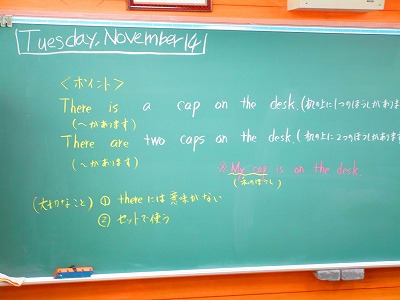 Tuesday, November 14
<ポイント>
There is a cap on the desk. (机の上に1つのぼうしがあります
(〜があります)
There are two caps on the desk. (机の上に2つのぼうしがあり
(〜があります)
※ My cap is on the desk.
(私のぼうし)
(大切なこと) ① thereには意味がない
② セットで使う